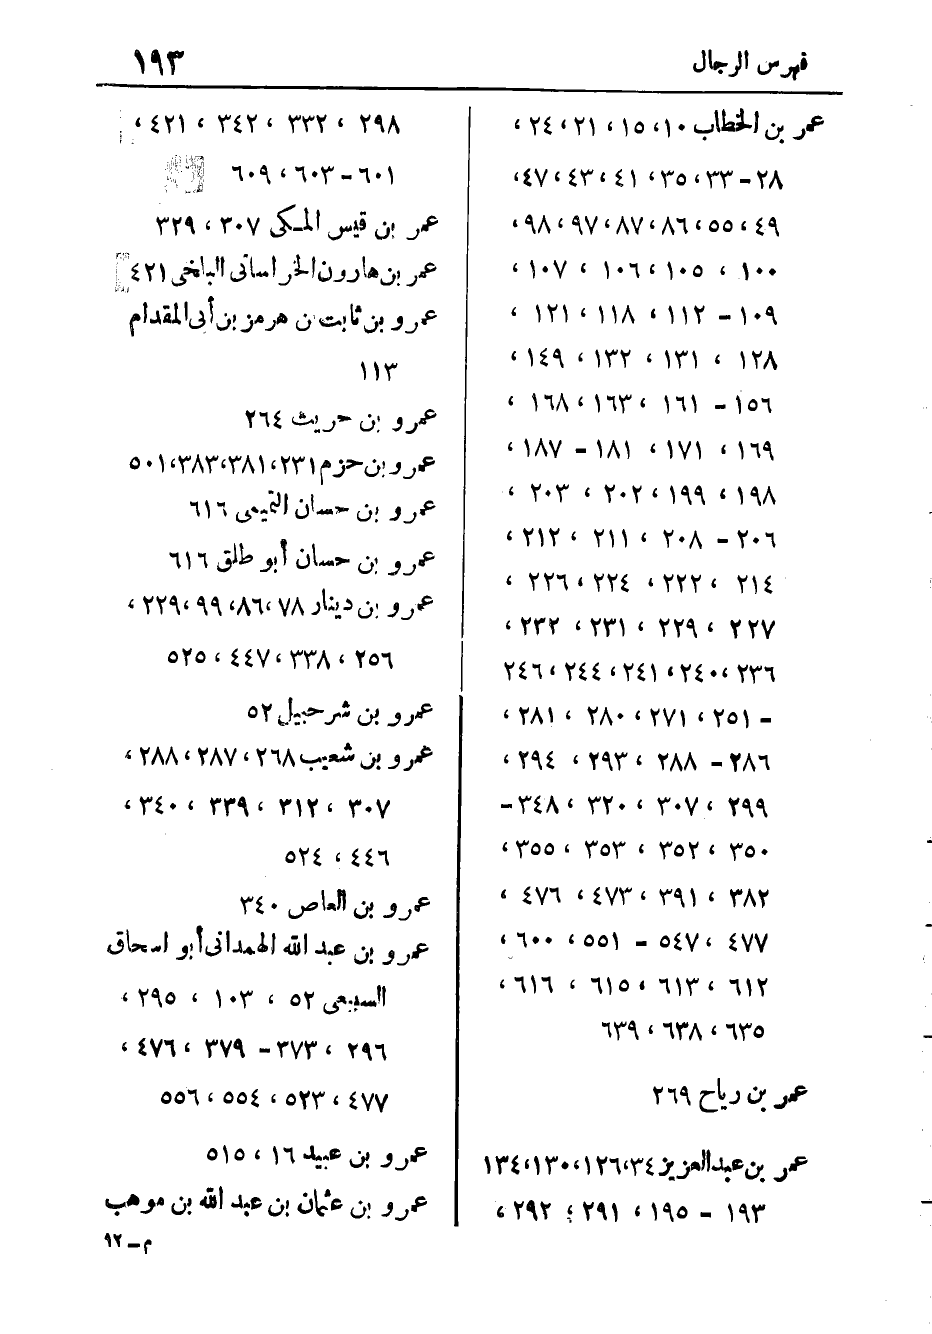 فهرس الرجال ١٩٣
عمر بن الخطاب ١٠، ١٥، ٢١، ٢٤،
٢٨ – ٣٣، ٣٥، ٤١، ٤٣، ٤٧،
٤٩، ٥٥، ٨٦، ٨٧، ٩٧، ٩٨،
١٠٠، ١٠٥، ١٠٦، ١٠٧،
١٠٩ – ١١٢، ١١٨، ١٢١،
١٢٨، ١٣١، ١٣٢، ١٤٩،
١٥٦ – ١٦١، ١٦٣، ١٦٨،
١٦٩، ١٧١، ١٨١ – ١٨٧،
١٩٨، ١٩٩، ٢٠٢، ٢٠٣،
٢٠٦ – ٢٠٨، ٢١١، ٢١٢،
٢١٤، ٢٢٢، ٢٢٤، ٢٢٦،
٢٢٧، ٢٢٩، ٢٣١، ٢٣٢،
٢٣٦، ٢٤٠، ٢٤١، ٢٤٤، ٢٤٦
– ٢٥١، ٢٧١، ٢٨٠، ٢٨١،
٢٨٦ – ٢٨٨، ٢٩٣، ٢٩٤،
٢٩٩، ٣٠٧، ٣٢٠، ٣٤٨ –
٣٥٠، ٣٥٢، ٣٥٣، ٣٥٥،
٣٨٢، ٣٩١، ٤٧٣، ٤٧٦،
٤٧٧، ٥٤٧ – ٥٥١، ٦٠٠،
٦١٢، ٦١٣، ٦١٥، ٦١٦،
٦٣٥، ٦٣٨، ٦٣٩
عمر بن رياح ٢٦٩
عمر بن عبدالعزيز ٣٤، ١٢٦، ١٣٠، ١٣٤
١٩٣ – ١٩٥، ٢٩١، ٢٩٢،
٢٩٨، ٣٣٢، ٣٤٢، ٤٢١،
٦٠١ – ٦٠٣، ٦٠٩
عمر بن قيس المكى ٣٠٧، ٣٢٩
عمر بن هارون الخراسانى البلخى ٤٢١
عمرو بن ثابت ن هرمز بن أبى المقدام
١١٣
عمرو بن حريث ٢٦٤
عمرو بن حزم ٢٣١، ٣٨١، ٣٨٣، ٥٠١
عمرو بن حسان التميمى ٦١٦
عمرو بن حسان أبو طلق ٦١٦
عمرو بن دينار ٧٨، ٨٦، ٩٩، ٢٢٩،
٢٥٦، ٣٣٨، ٤٤٧، ٥٢٥
عمرو بن شرحبيل ٥٢
عمرو بن شعيب ٢٦٨، ٢٨٧، ٢٨٨،
٣٠٧، ٣١٢، ٣٣٩، ٣٤٠،
٤٤٦، ٥٢٤
عمرو بن العاص ٣٤٠
عمرو بن عبد الله الهمدانى أبو اسحاق
السبيعى ٥٢، ١٠٣، ٢٩٥،
٢٩٦، ٣٧٣ – ٣٧٩، ٤٧٦،
٤٧٧، ٥٢٣، ٥٥٤، ٥٥٦
عمرو بن عبيد ١٦، ٥١٥
عمرو بن عثمان بن عبد الله بن موهب
م – ٩٢